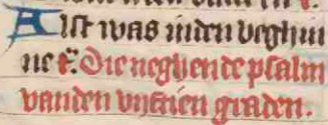 Alst was inden beghin
ne ꝛc̄. Die neghende psalm
vanden vijftien graden.